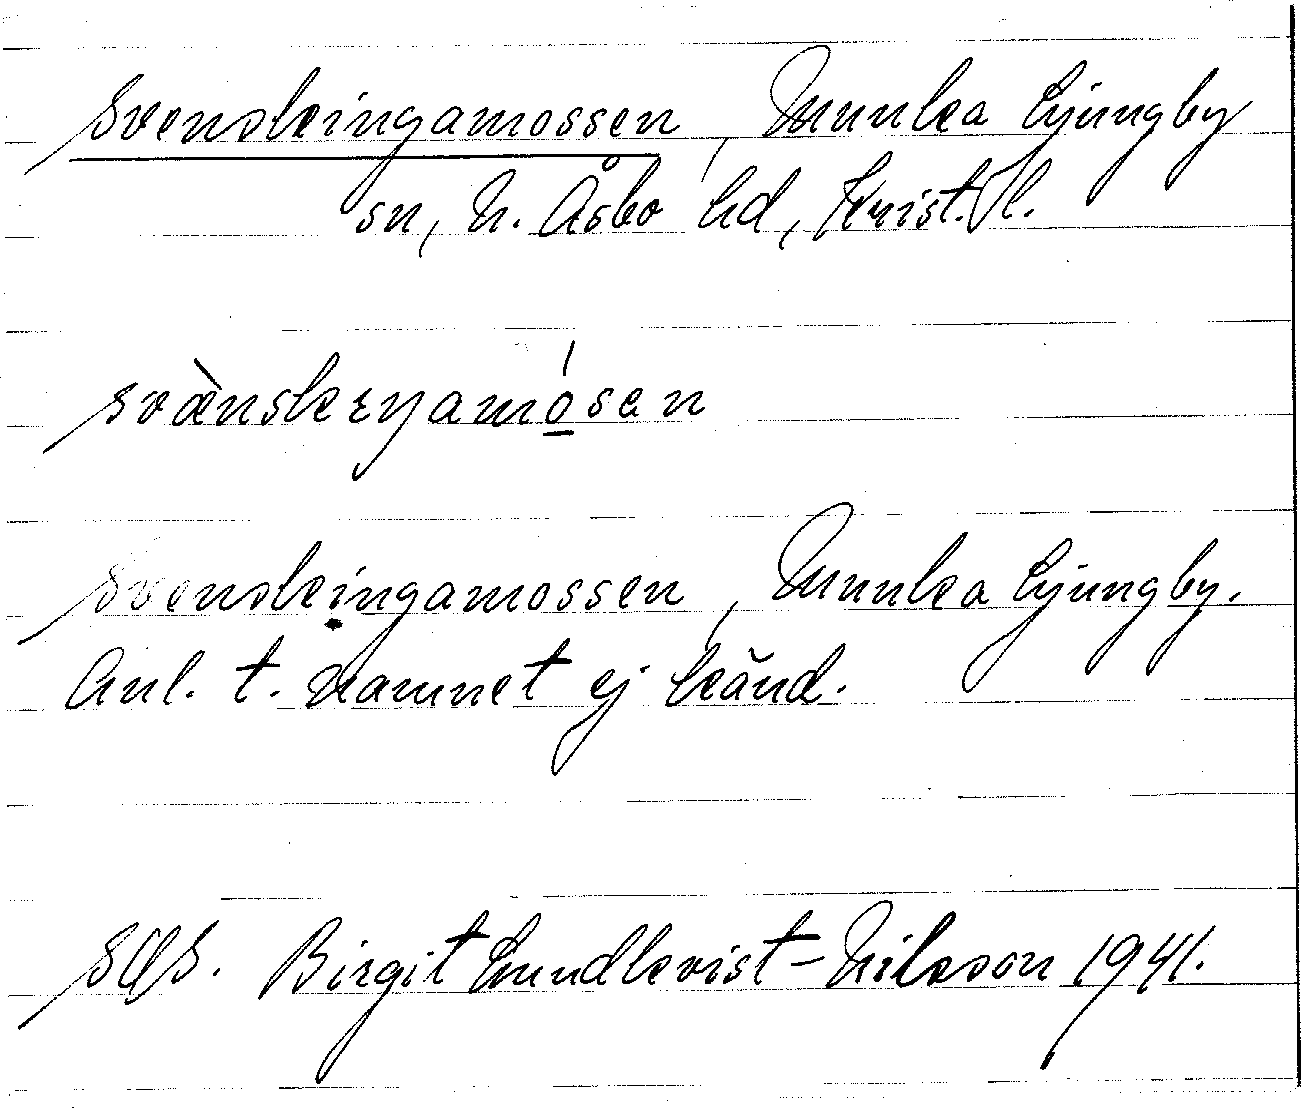 Svenskingamossen, Munka Ljungby
sn, N. Åsbo hd, Krist. l.
svæ̀nskɪŋamósan
Svenskingamossen, Munka Ljungby.
Anl. t. namnet ej känd.
Birgit Lundkvist-Nilsson 1941.